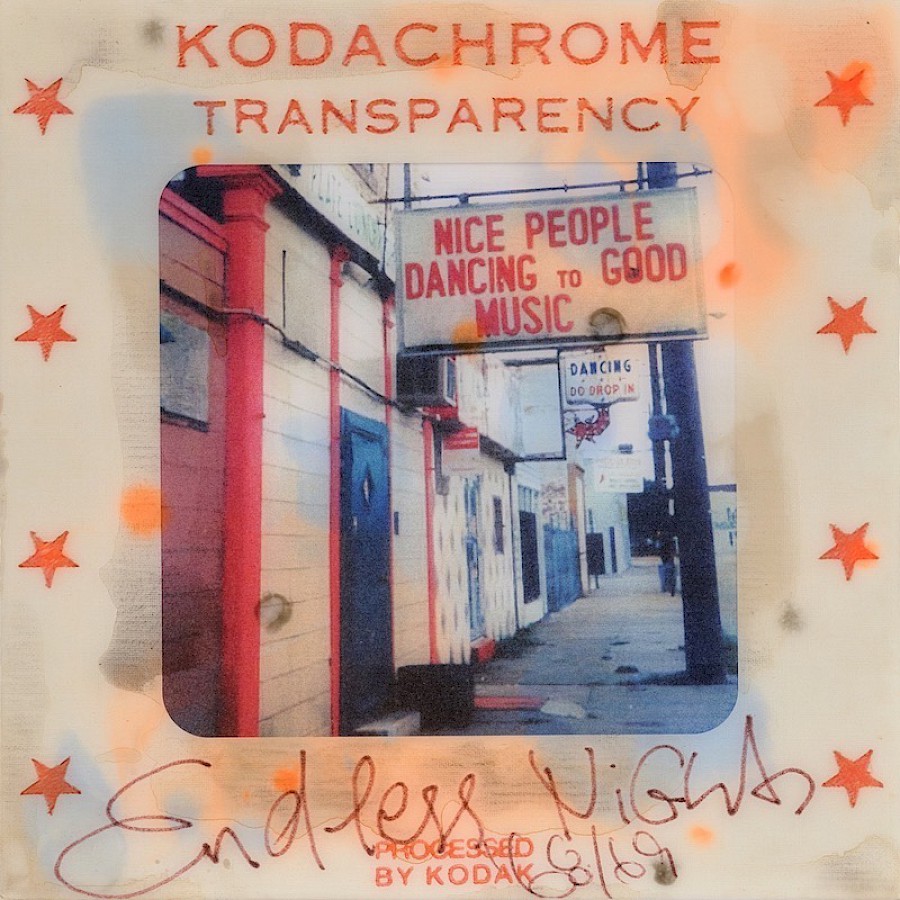 KODACHROME
TRANSPARENCY
NICE PEOPLE
DANCING TO GOOD
MUSIC
DANCING
DO DROP IN
Endless Nights
PROCESSED
BY KODAK
68/69